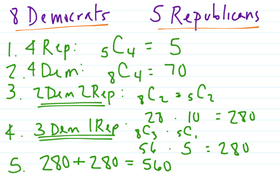 8 Democrats 5 Republicans
1. 4 Rep: ₅C₄ = 5
2. 4 Dem: ₈C₄ = 70
3. 2 Dem 2 Rep: ₈C₂ = ₅C₂
28 · 10 = 280
4. 3 Dem 1 Rep: ₈C₃ · ₅C₁
56 · 5 = 280
5. 280 + 280 = 560